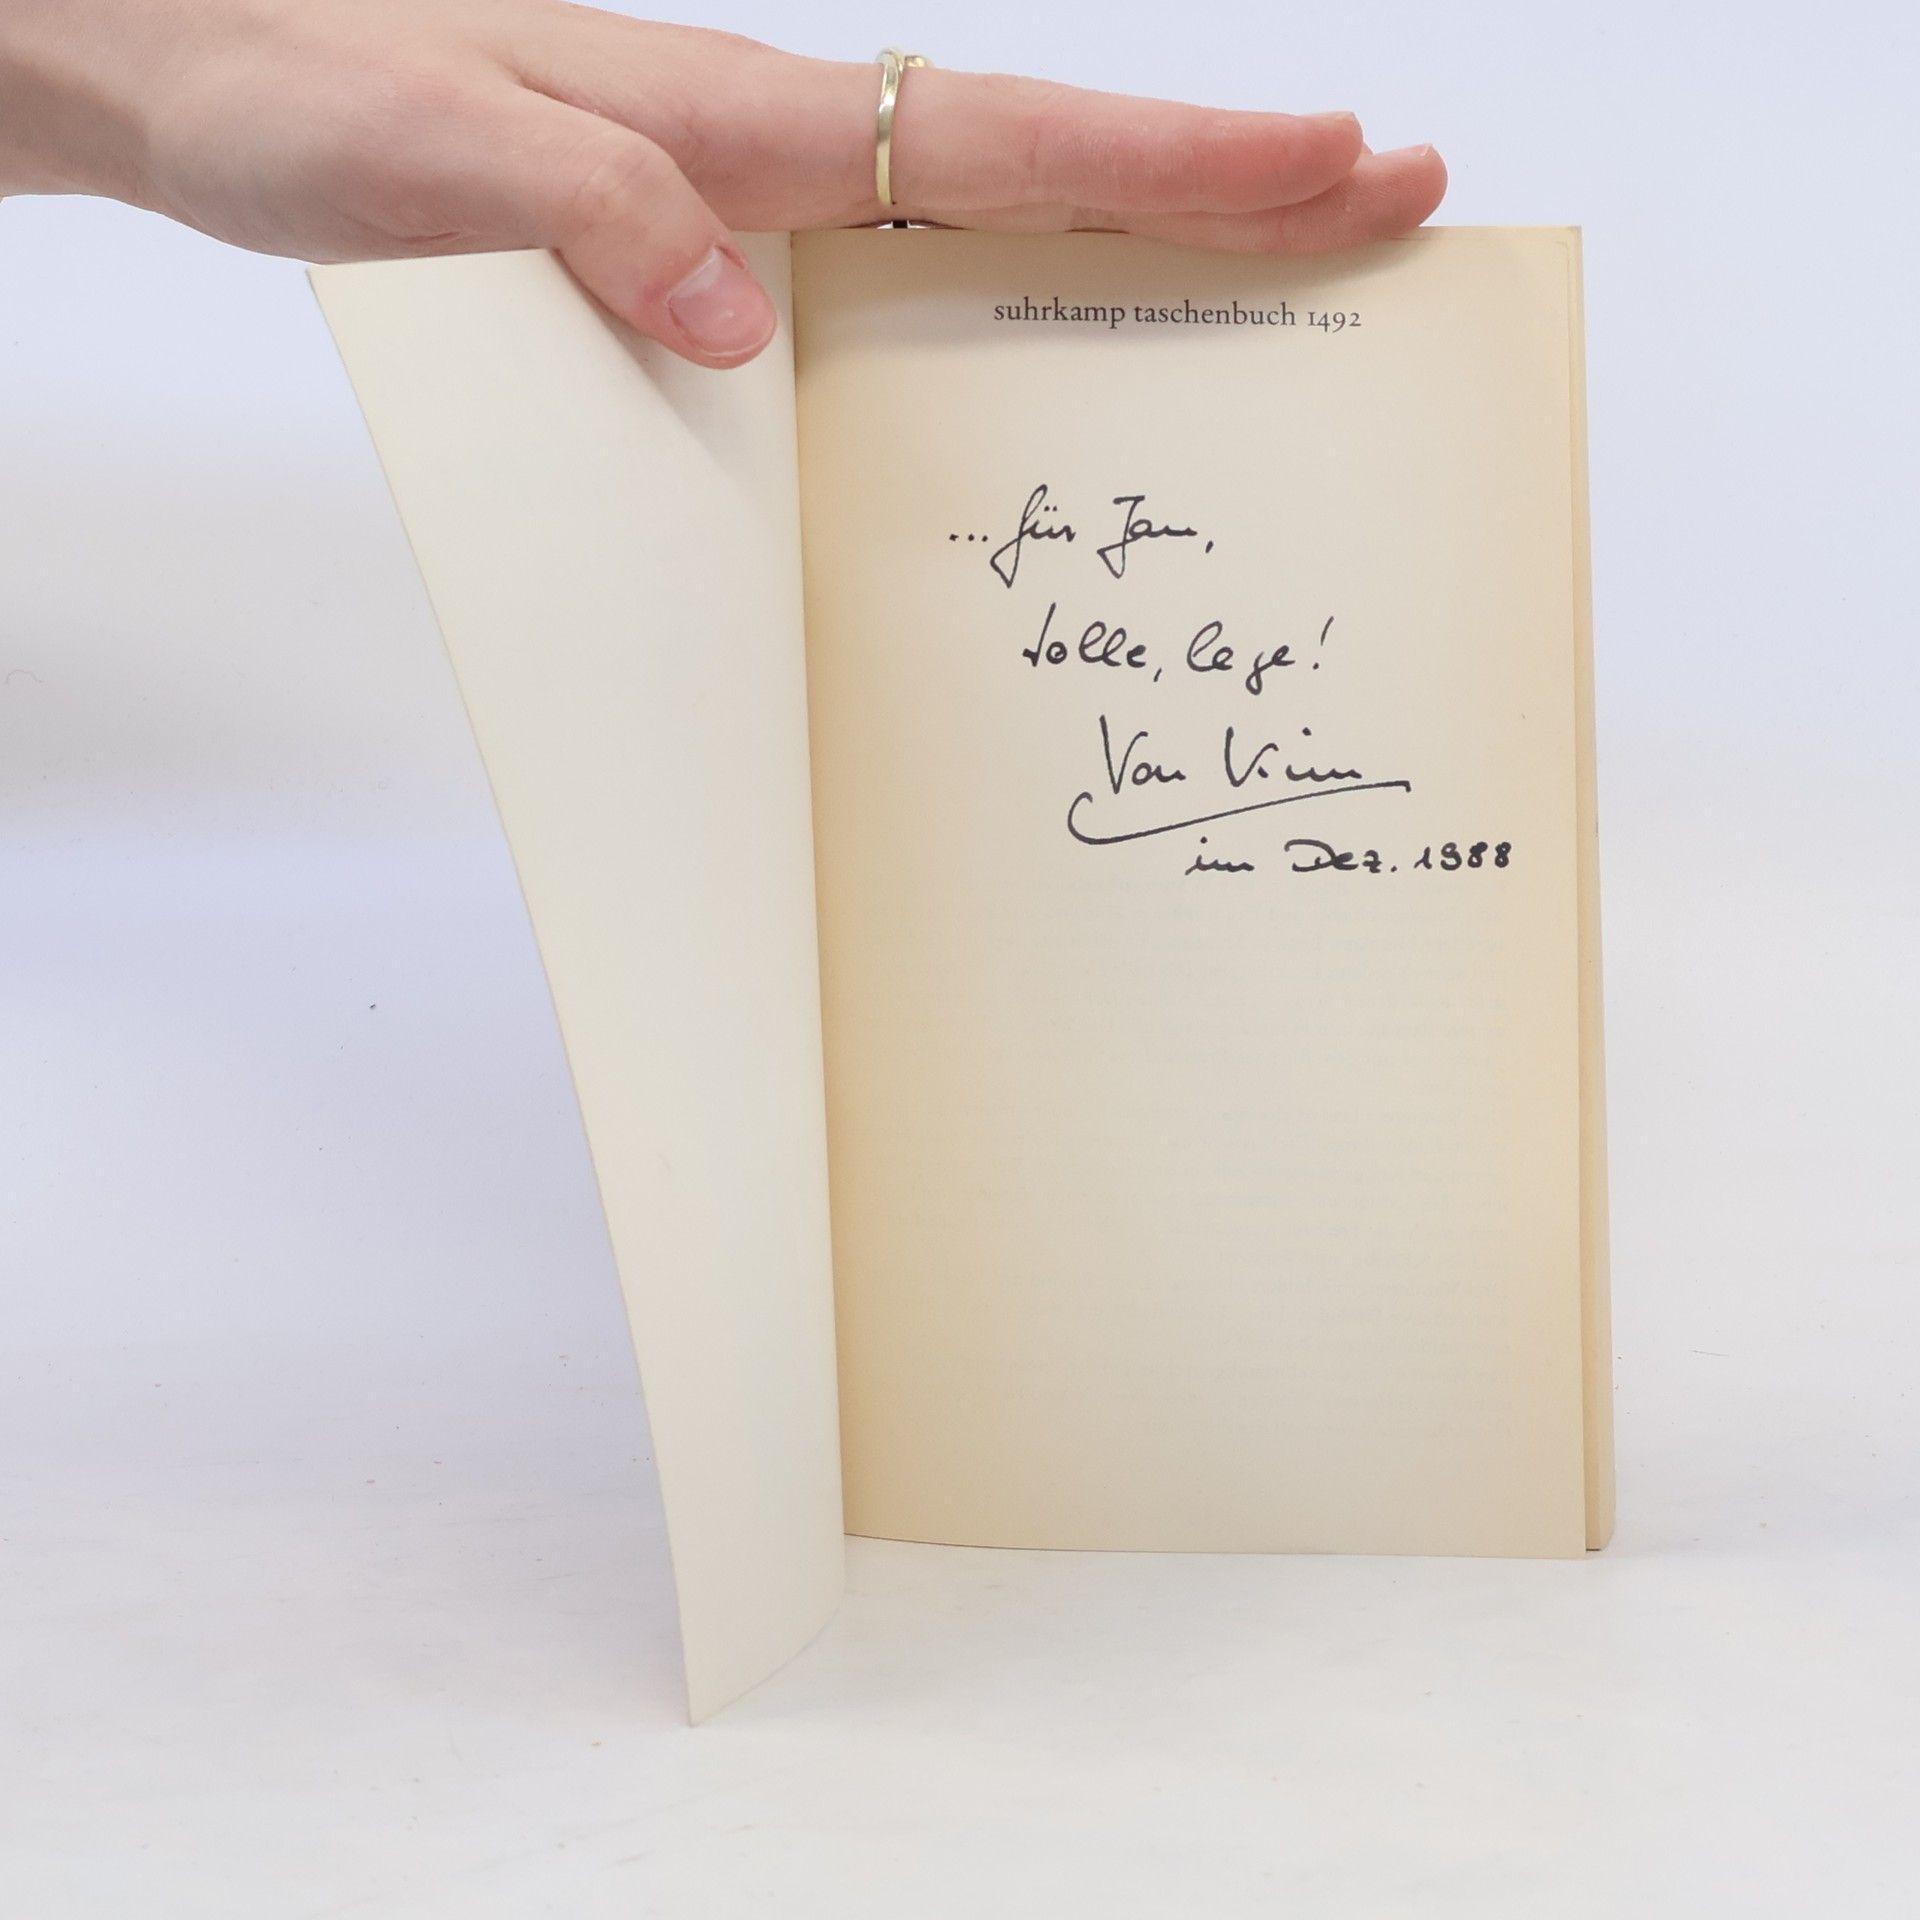 suhrkamp taschenbuch 1492
... für Jan,
tolle, lege!
Von
im Dez. 1988